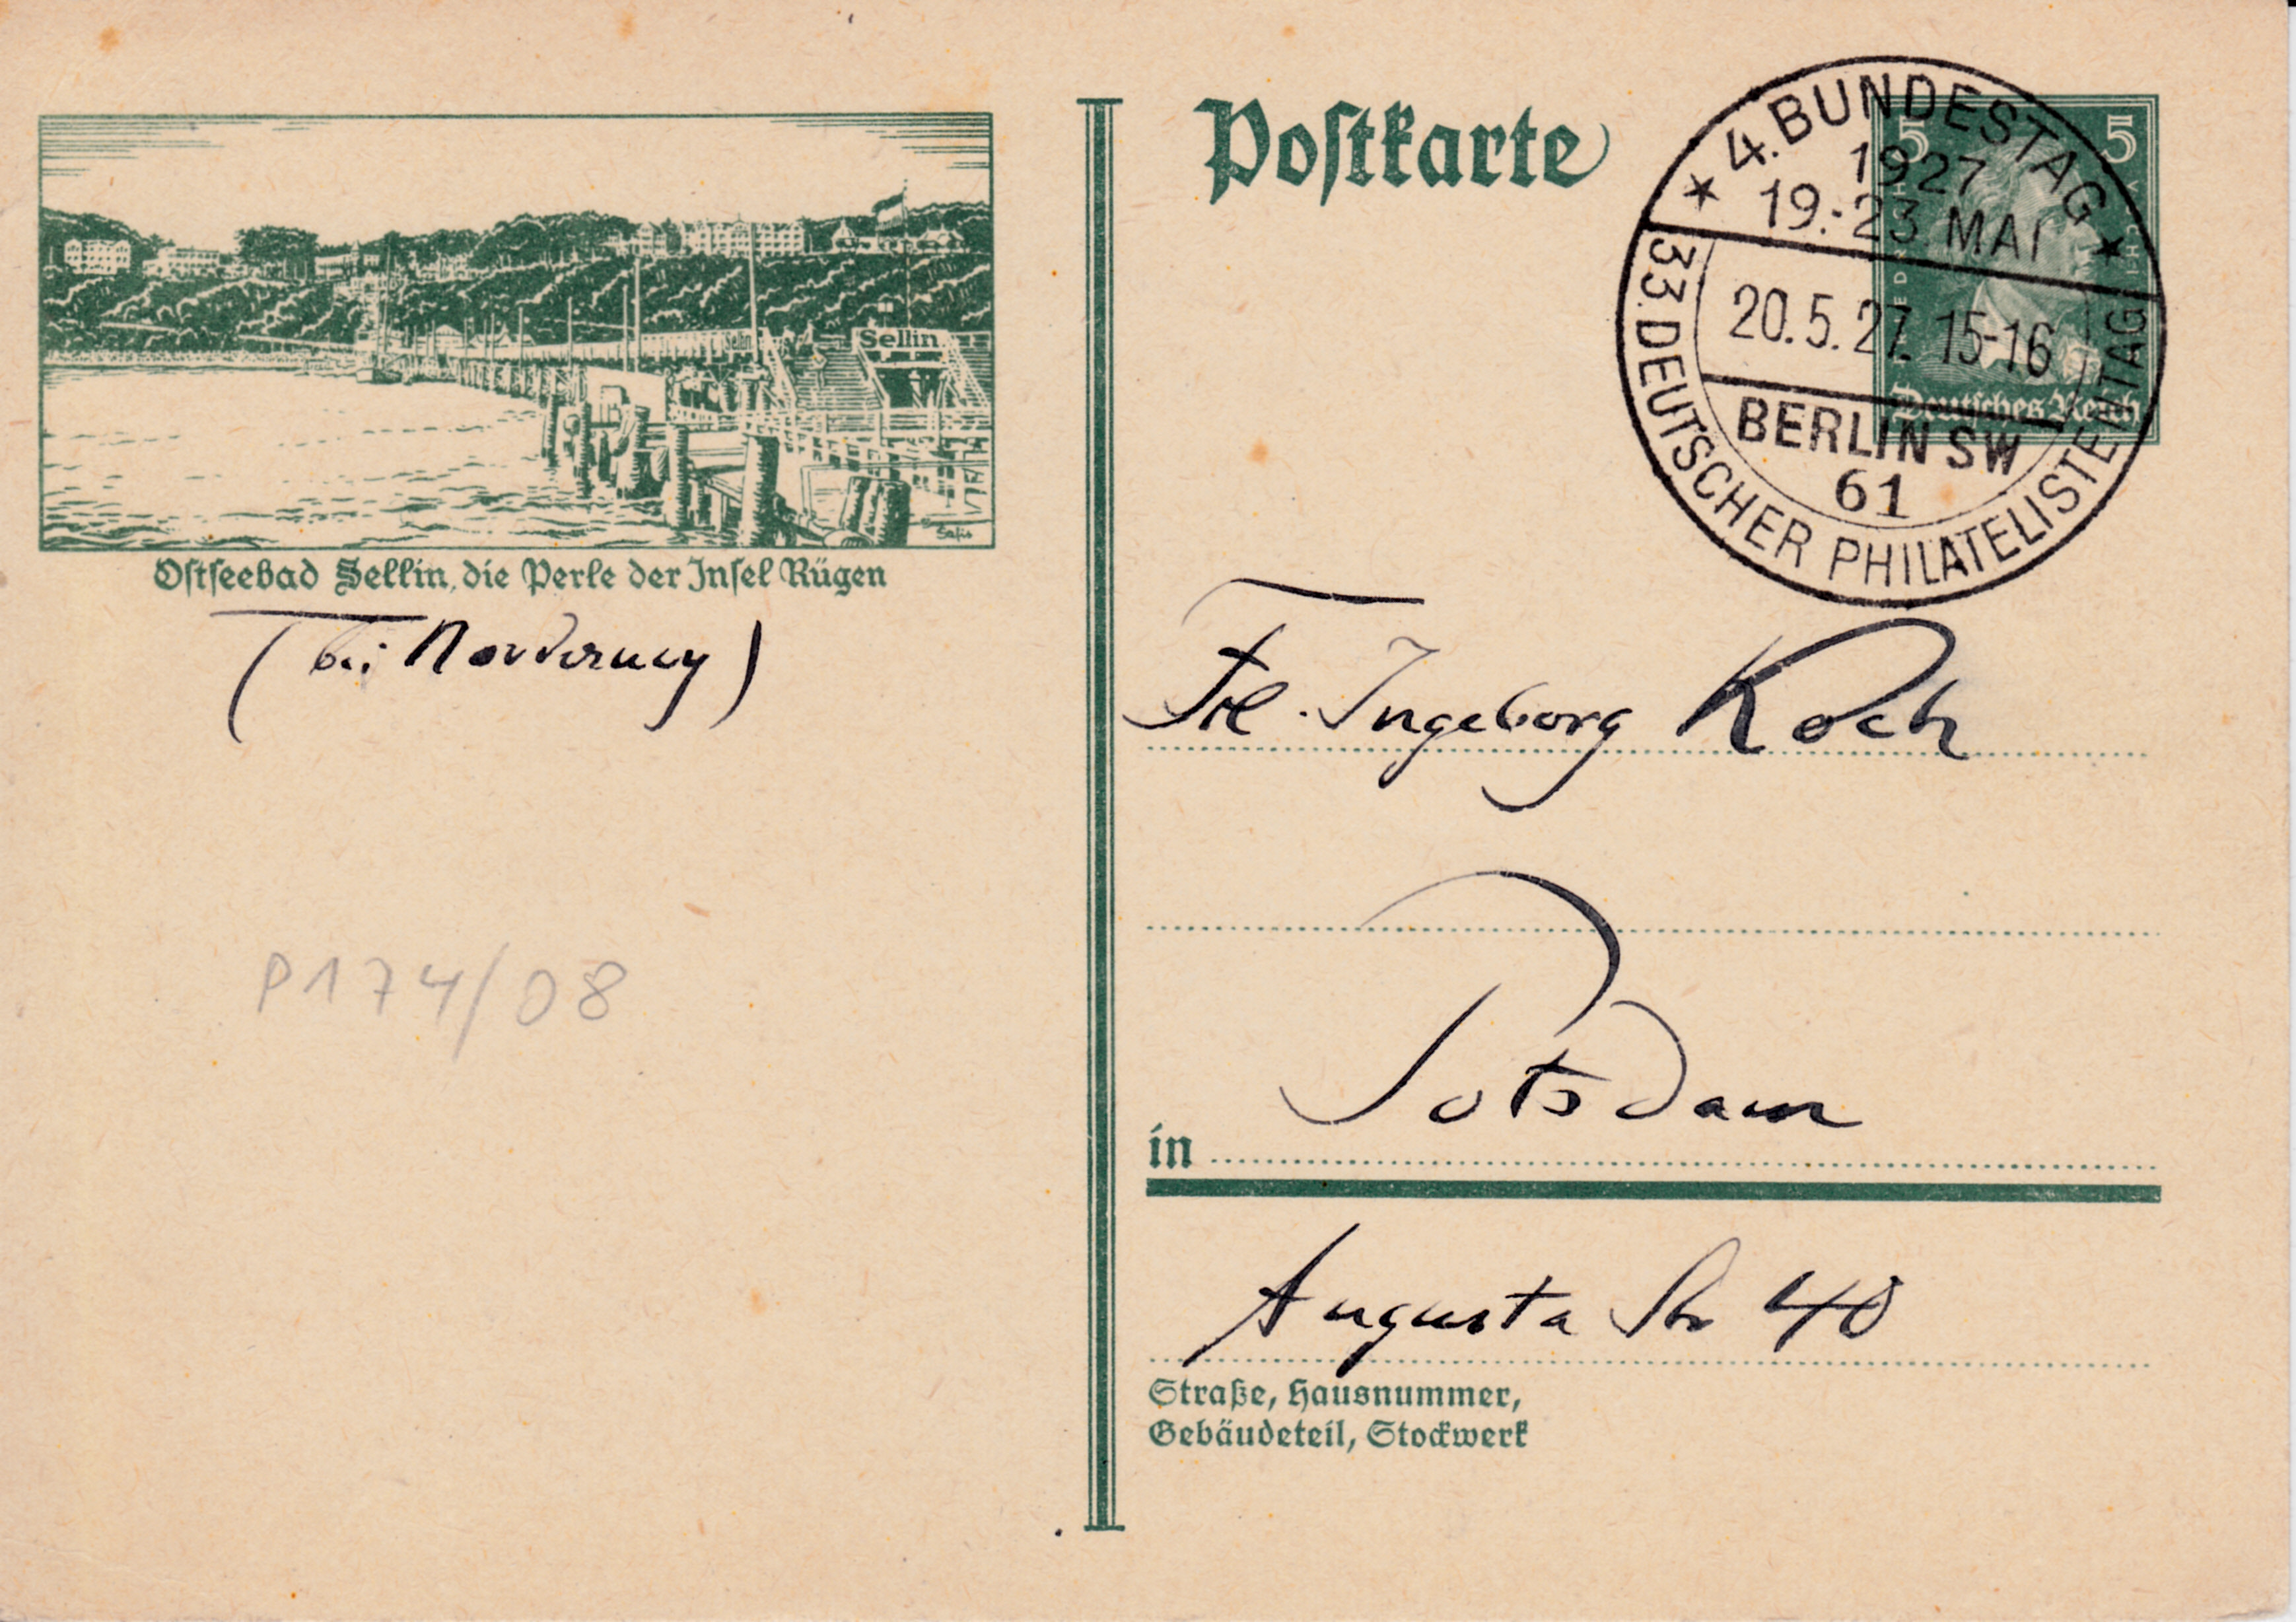 Sellin
Sellin
Safis
Ostseebad Sellin, die Perle der Insel Rügen
(bei Norderney)
P174/08
Postkarte
5 5
Deutsches Reich
★ 4. BUNDESTAG ★
1927
19.-23. MAI
20.5.27. 15-16
BERLIN SW
61
33. DEUTSCHER PHILATELISTENTAG
Frl. Ingeborg Koch
Potsdam
in
Augusta Str 40
Straße, Hausnummer,
Gebäudeteil, Stockwerk